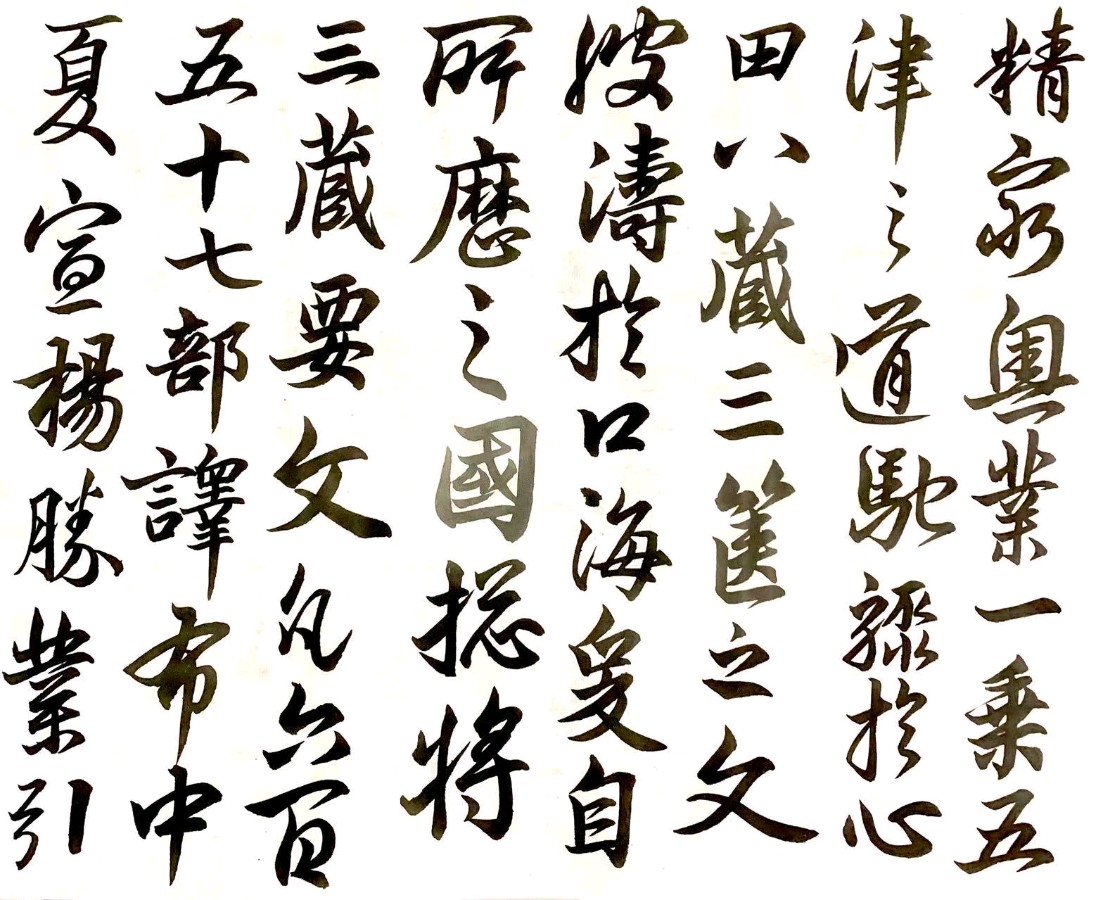 精窮奧業一乘五
律之道馳驟於心
田八藏三篋之文
波濤於口海爰自
所歷之國揔將
三藏要文凡六百
五十七部譯布中
夏宣楊勝業引